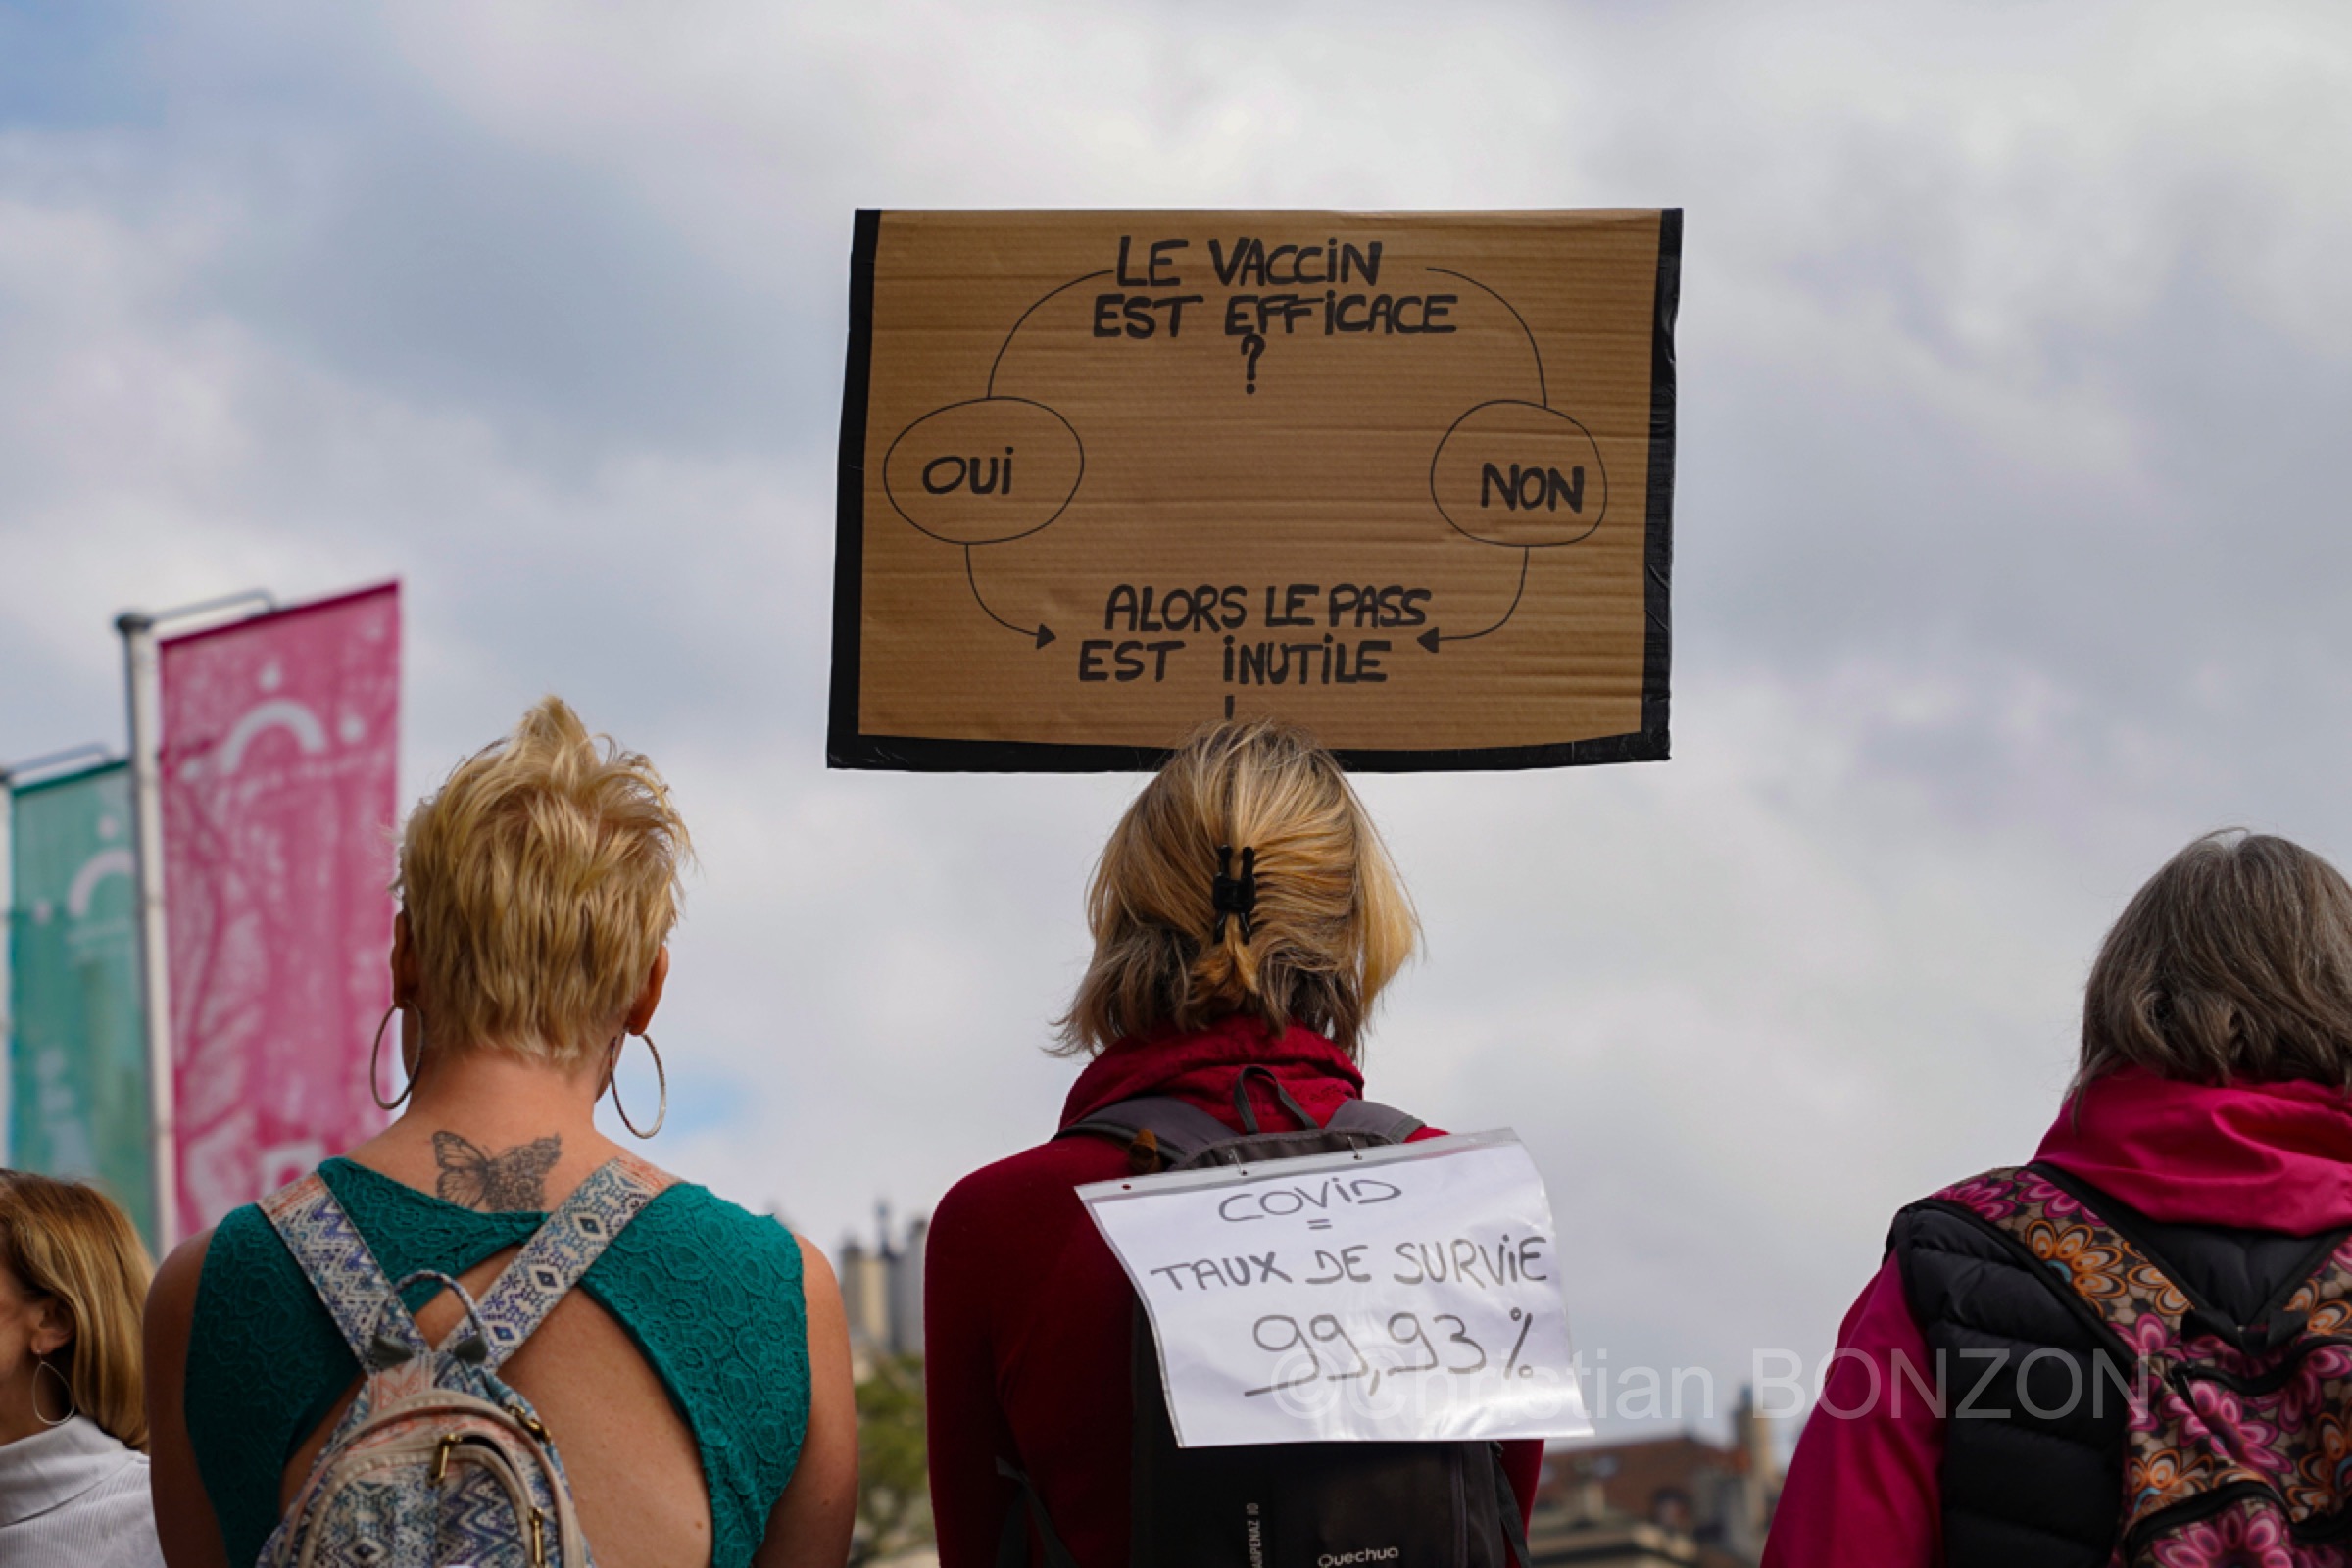 LE VACCIN
EST EFFICACE
?
OUI
NON
ALORS LE PASS
EST INUTILE
COVID
=
TAUX DE SURVIE
99,93%
©Christian BONZON
ARPENAZ 10
Quechua